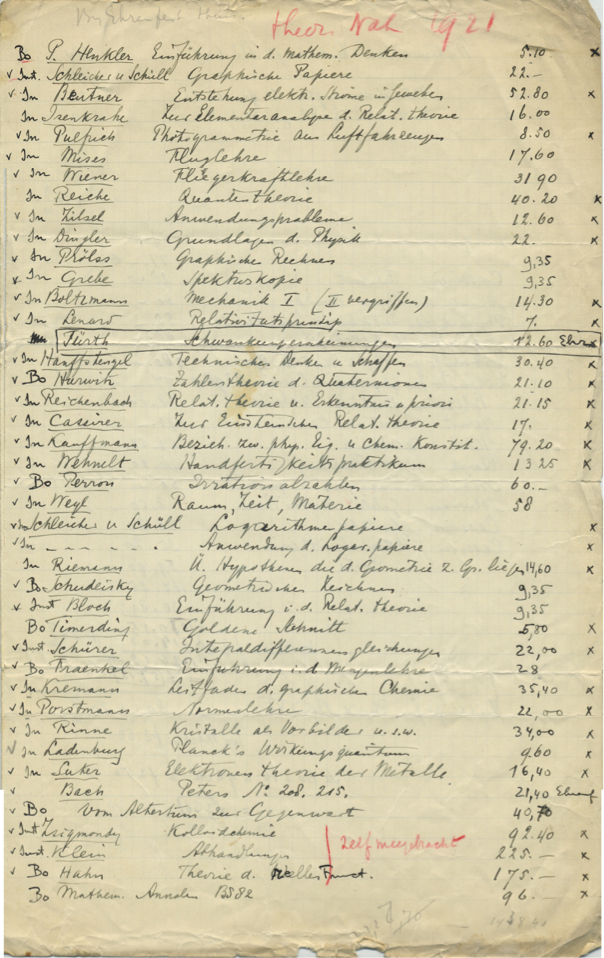 By Ehrenfest thuis.
Theor. Nat 1921
Bo P. Henkler Einführung in d. mathem. Denken 5.10 x
v Inst. Schleicher u Schüll Graphische Papiere 22.-
v In Beutner Entstehung elektr. Ströme in Geweben 52.80 x
In Isenkrahe Zur Elementaranalyse d. Relat. theorie 16.00
v In Pulfrich Photogrammetrie aus Luftfahrzeugen 8.50 x
v In Mises Fluglehre 17.60
v In Wiener Fliegerkraftlehre 31 90
In Reiche Quantentheorie 40.20 x
v In Zilsel Anwendungsprobleme 12.60 x
v In Dingler Grundlagen d. Physik 22. x
v In Prölss Graphisches Rechnen 9,35
v In Grebe Spektroskopie 9,35
v In Boltzmann Mechanik I (II vergriffen) 14.30 x
v In Lenard Relativitätsprinzip 7. x
Fürth Schwankungserscheinungen 12.60 Ehr x
v In Hanffstengel Technisches Denken u Schaffen 30.40 x
v Bo Hurwitz Zahlentheorie d. Quaternionen 21.10 x
v In Reichenbach Relat. theorie u. Erkenntnis a priori 21.15 x
v In Cassirer Zur Einsteinschen Relat. theorie 17. x
v In Kauffmann Bezieh. zw. phys. Eig. u Chem. Konstit. 79.20 x
v In Wehnelt Handfertigkeitspraktikum 13 25 x
v Bo Perron Irrationalzahlen 60.-
v In Weyl Raum, Zeit, Materie 58
v In Schleicher u Schüll Logarithmenpapiere x
v In - - - - - . Anwendung d. Logar. papiere x
In Riemann Ü. Hypothesen die d. Geometrie z. Gr. liegen 14,60 x
v Bo Schudeisky Geometrisches Zeichnen 9,35
v Inst Bloch Einführung i. d. Relat. theorie 9,35
Bo Timerding Goldene Schnitt 5,80 x
v Inst. Schürer Integraldifferenzengleichungen 22,00 x
v Bo Fraenkel Einführung i. d. Mengenlehre 28
v In Kremann Leitfaden d. graphischen Chemie 35,40 x
v In Porstmann Normenlehre 22,00 x
v In Rinne Kristalle als Vorbilder u.s.w. 34,00 x
v In Ladenburg Planck's Wirkungsquantum 9.60 x
v In Suter Elektronentheorie der Metalle 16,40 x
v Bach Peters No. 208. 215. 21,40
v Bo Vom Altertum zur Gegenwart 40,70
v Inst Zsigmondy Kolloidchemie 92.40 x
zelf meegebracht
v Inst. Klein Abhandlungen 225.- x
v Bo Hahn Theorie d. reellen Funct. 175.- x
Bo Mathem. Annalen Bd 82 96.- x